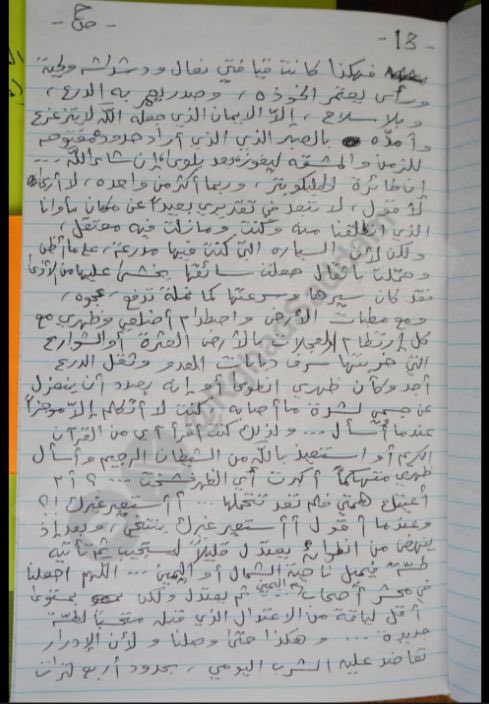 - 13 -
فهكذا كانت قيافتي نعال ودشداشة ولحية
ورأس يعتمر الخوذه ، وصدر يعمر به الدرع ،
وبلا سلاح ، إلّا الايمان الذي جعله اللّه لا يتزعزع
وأمدّه بالصبر الذي الذي أراد حدوده مفتوحه
للزمن والمشقه ليفوز بعد بلوى ، إن شاء اللّه ...
إن طائرة الهليكوبتر ، وربما أكثر من واحده ، لا
لأقول ، لا تبعد في تقديري بعيداً عن مكان مأوانا
الذي انطلقنا منه وكنت ومازلت فيه معتقل ،
ولكن لأن السياره التي كنت فيها مدرعة ، على ما أظن
وحمّلت باثقال جعلت سائقها يخشى عليها من الأذى
فقد كان سيرها وسرعتها كما نملة تدفع ،
ومع مطبات الأرض واصطدام أضلعي وظهري مع
كل إرتطام للعجلات بالأرض العثرة أو الشوارع
التي خربتها سرف دبابات العدو وثقل الدرع
أجد وكأن ظهري انطوى أو إنه بصدد أن ينعزل
عن جسمي لشدة ما أصابه وكنت لا أتكلم إلاّ موجزاً
عندما أُسأل ... ولذلك كنت أقرأ آي من القرآن
الكريم أو استعيذ باللّه من الشيطان الرجيم وأسأل
ظهري متهكماً أكبرت أي الظهر فشخت ... ؟ أم
أعيتك همتي فلم تعد تتحملها ... أأستعير غيرك !؟
وعندما أقول أأستعير غيرك ينتخي ، وبعد إذ
ينهض من انطوائه يعتدل قليلاً ليستجيب ثم تأتيه
طسّة فيميل ناحية الشمال أو اليمين ... اللهم اجعلنا
في محشر أصحاب اليمين ثم يعتدل ولكن بمستوى
أقل لياقة من الاعتدال الذي قبله متحسباً لطسّة
جديدة ... وهكذا حتى وصلنا ولأن الإدرار
تقاضد عليه الشرب اليومي ، بحدود أربع لترات